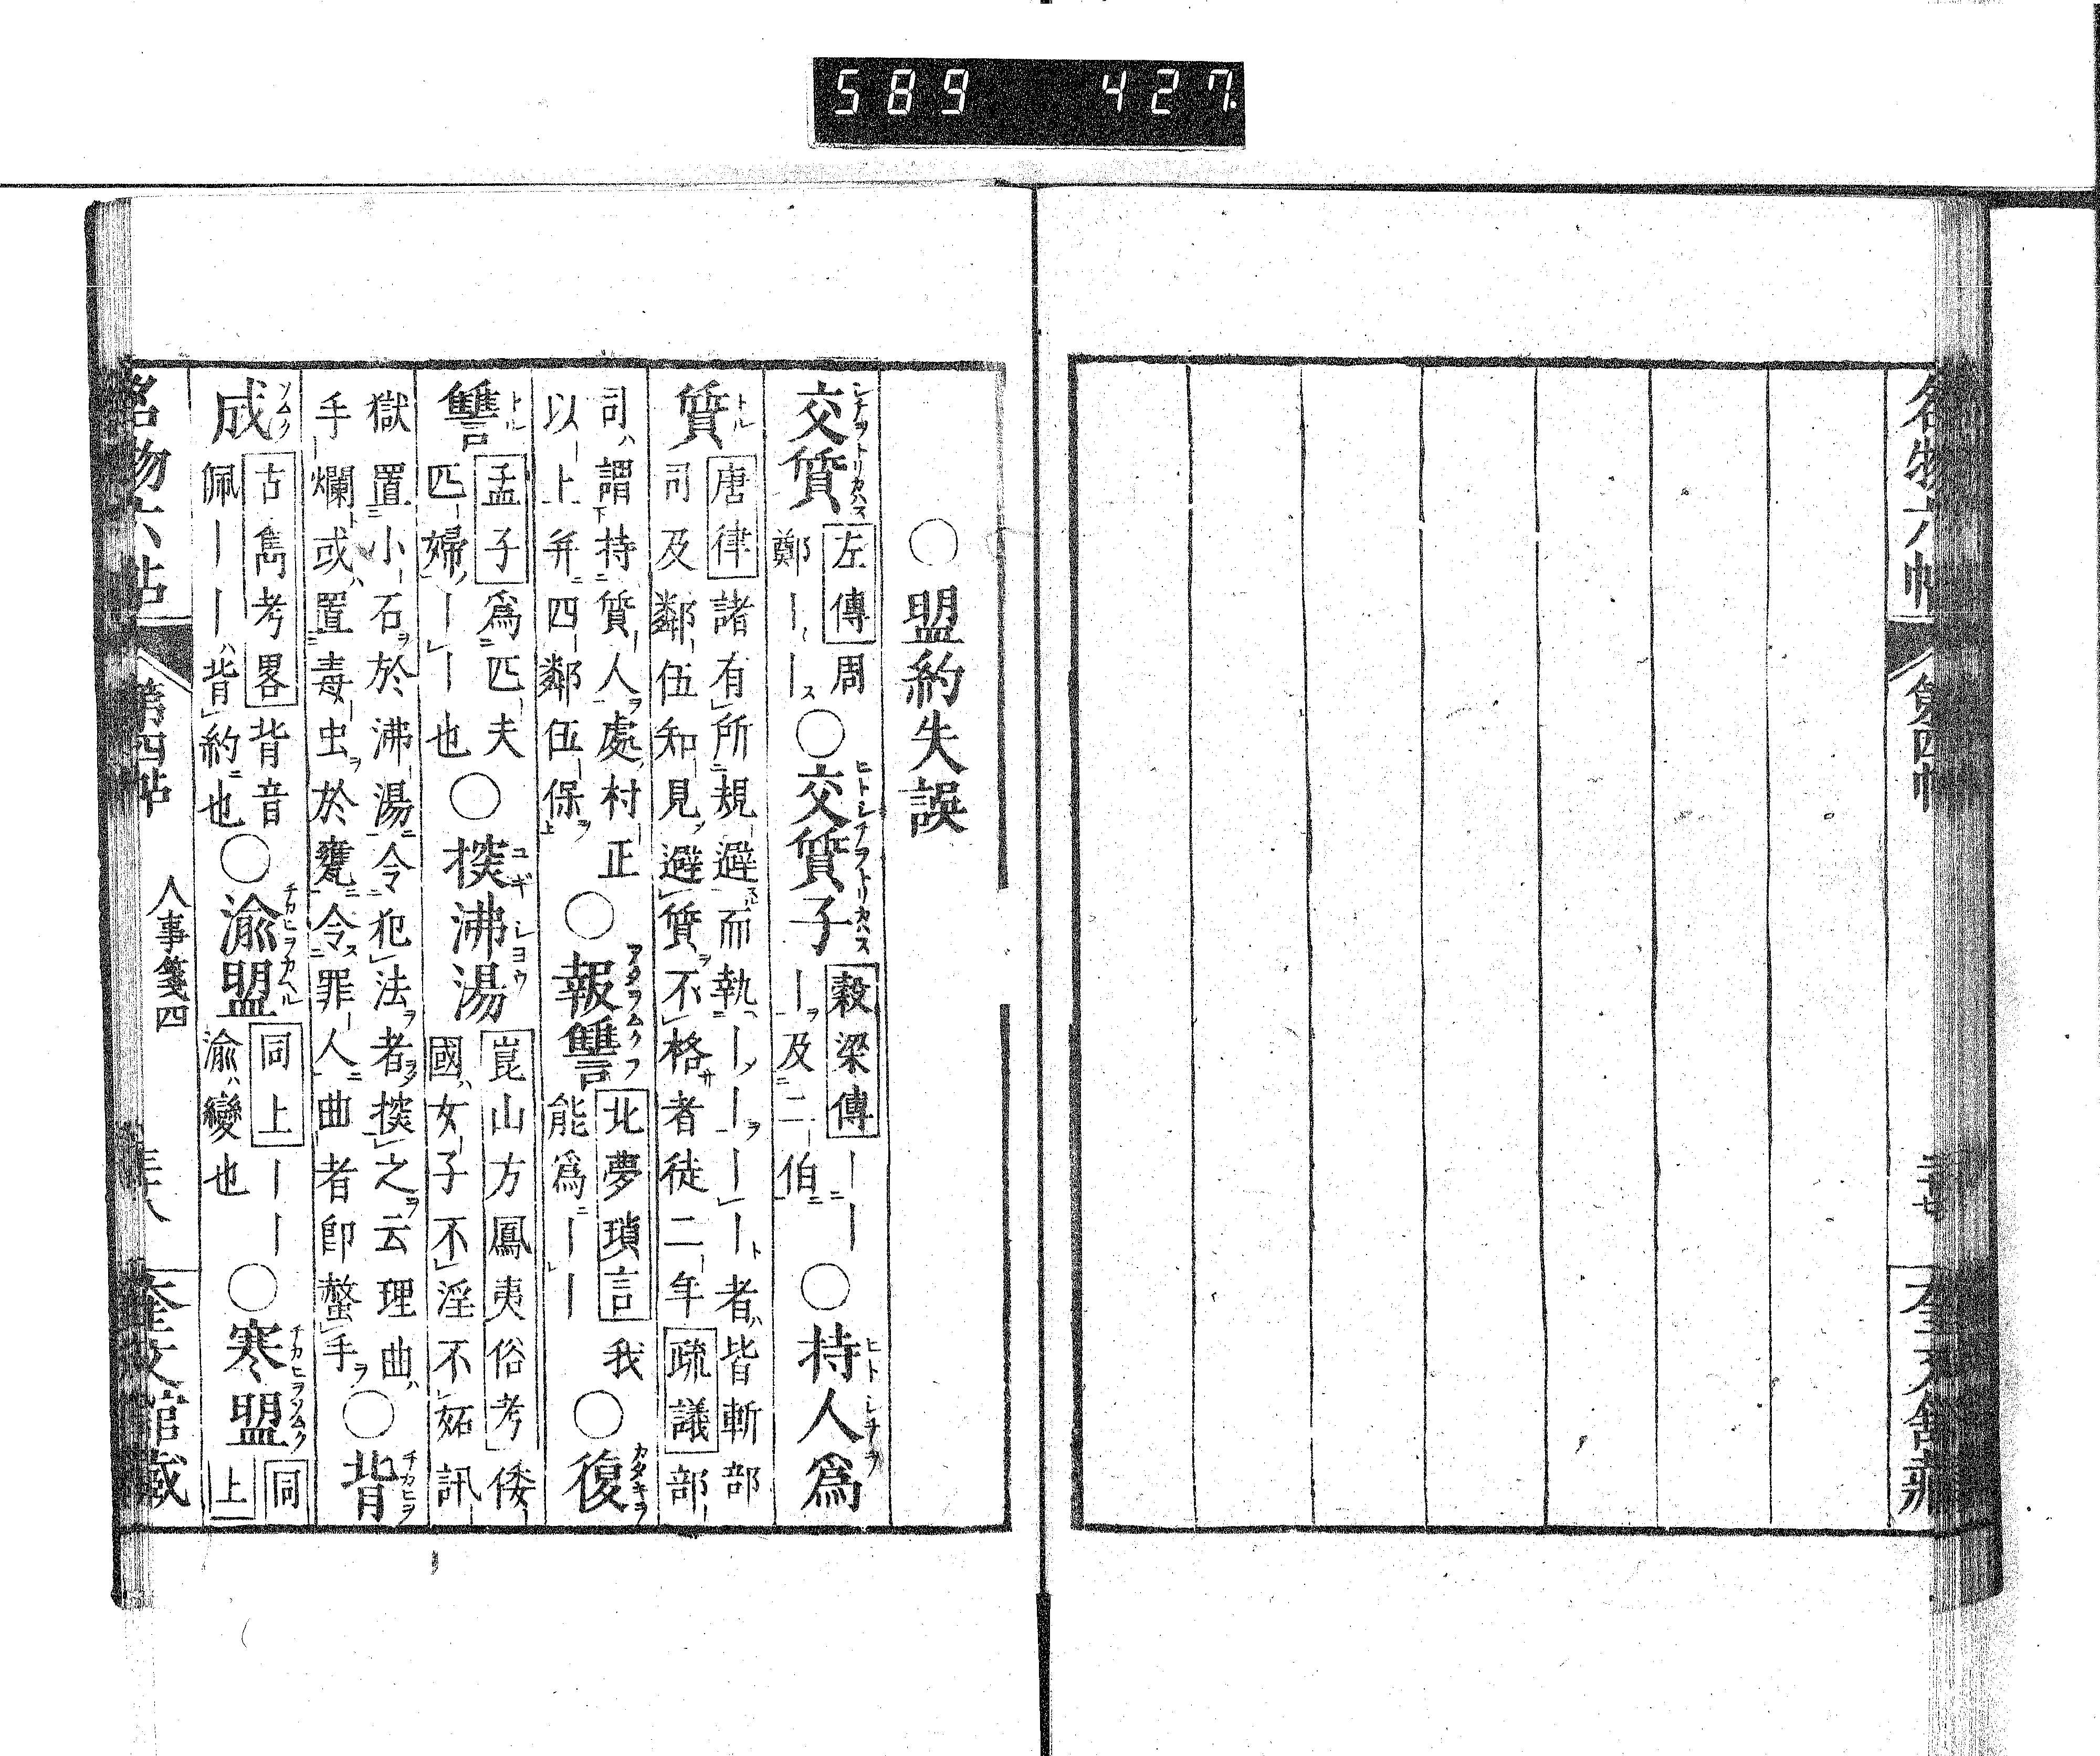 589 427
名物六帖 第四帖
○盟約失誤
交質 左傳 周鄭｜｜ ○交質子 穀梁傳 ｜｜｜及二伯 ○持人爲
質 唐律 諸有所規避而執｜｜｜｜者皆斬部司及鄰伍知見避質不格者徒二年 疏議 部
司謂持質人處村正以上并四鄰伍保 ○報讐 北夢瑣言 我能爲｜｜ ○復
讐 孟子 爲匹夫匹婦｜｜也 ○揬沸湯 崑山方鳳夷俗考 倭國女子不淫不妬訊
獄置小石於沸湯令犯法者揬之云理曲手爛或置毒虫於甕令罪人曲者卽螫手 ○背
成 古雋考畧 背音佩｜｜背約也 ○渝盟 同上 ｜｜渝變也 ○寒盟 同上
名物六帖 第四帖 人事箋四 奎文館藏